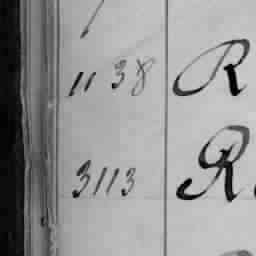 1138 R
3113 R